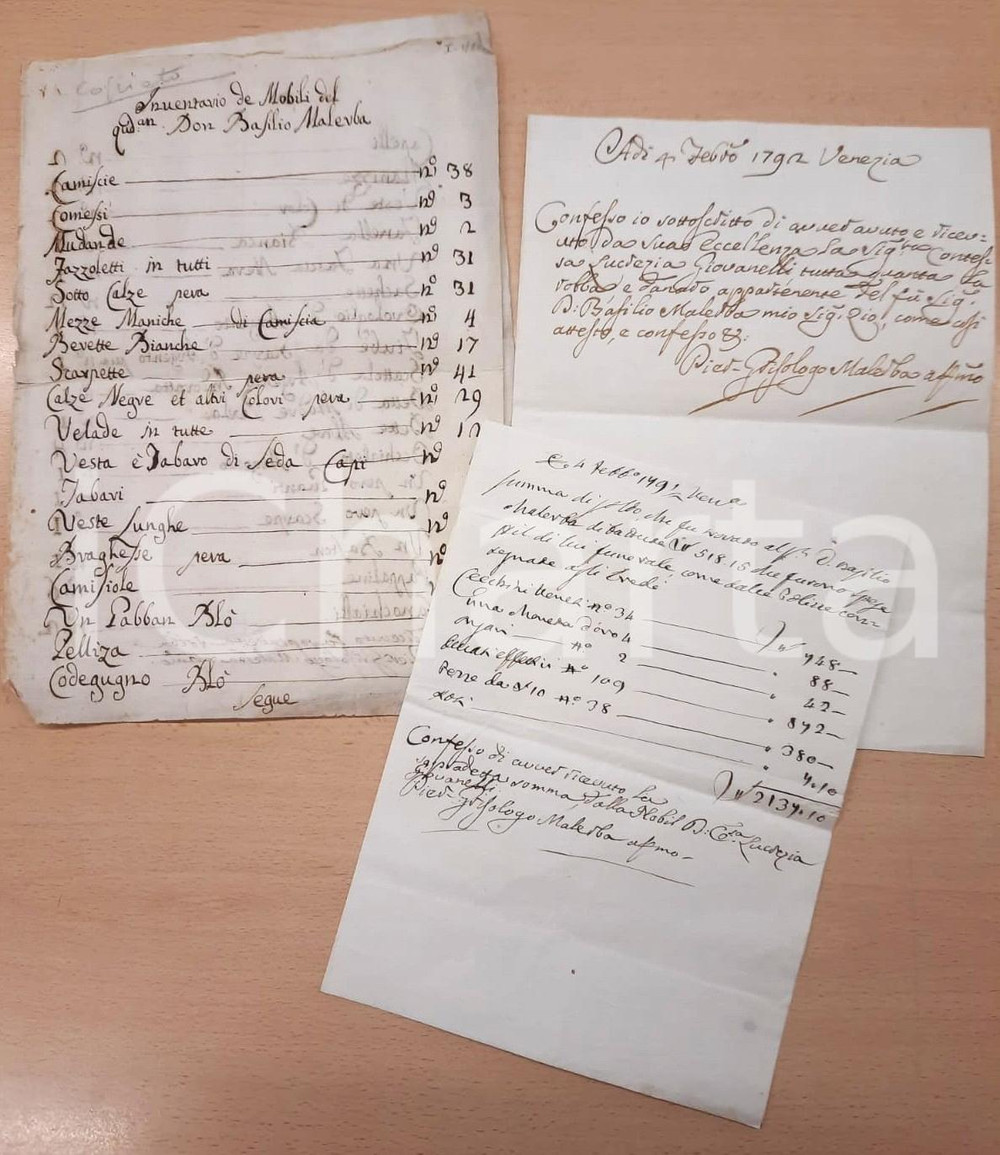 Copiato
Inventario de Mobili del
qud.am Don Basilio Malerba
Camiscie nº 38
Comessi nº 3
Mudande nº 2
Fazzoletti in tutti nº 31
Sotto Calze pera nº 31
Mezze Maniche di Camiscia nº 4
Berette Bianche nº 17
Scarpette pera nº 41
Calze Negre et altri Colori pera nº 29
Velade in tutte nº
Vesta è Tabaro di Seda Capi nº
Tabari nº
Veste Lunghe nº
Braghesse pera nº
Camisiole
Un Gabban Blò
Pelliza
Codegugno Blò
Segue
Adi 4 Febro 1792 Venezia
Confesso io sottoscritto di aver avuto e ricev=
uto da Sua Eccellenza la Sig.ra Contes=
sa Lucrezia Giovanelli tutta quanta la
robba e danaro appartenente del fù Sig.r
D. Basilio Malerba mio Sig.r Zio, come così
attesto, e confesso &:
Pier-Grisologo Malerba affmo
4 Febbº Vena
summa di soldo, che fu trovato al D. Basilio
Malerba di 518.15 che furono spesi
nel di lui funerale come dalle Polize con=
segnate agli Eredi
Cecchini Veneti nº 34 748
Una Moneta d'oro 88
Ongari nº 2 42
Ducati effettivi nº 109 872
Pezze da 10 nº 38 380
4.10
2134.10
Confesso di aver ricevuto la
sopradetta somma dalla Nobil D. Co:ssa Lucrezia
Giovanelli
Pier-Grisologo Malerba affmo
Charta